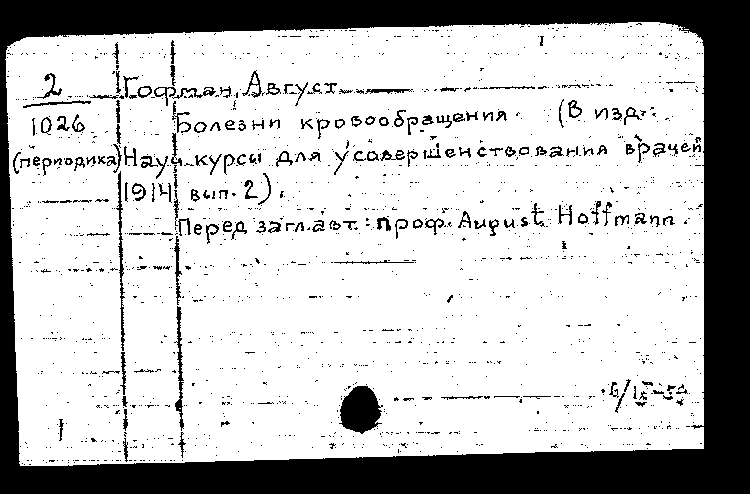 2 Гофман, Август
1026 Болезни кровообращения. (В изд.:
(периодика) Науч. курсы для усовершенствования врачей
1914 вып. 2).
Перед загл. авт.: проф. August Hoffmann.